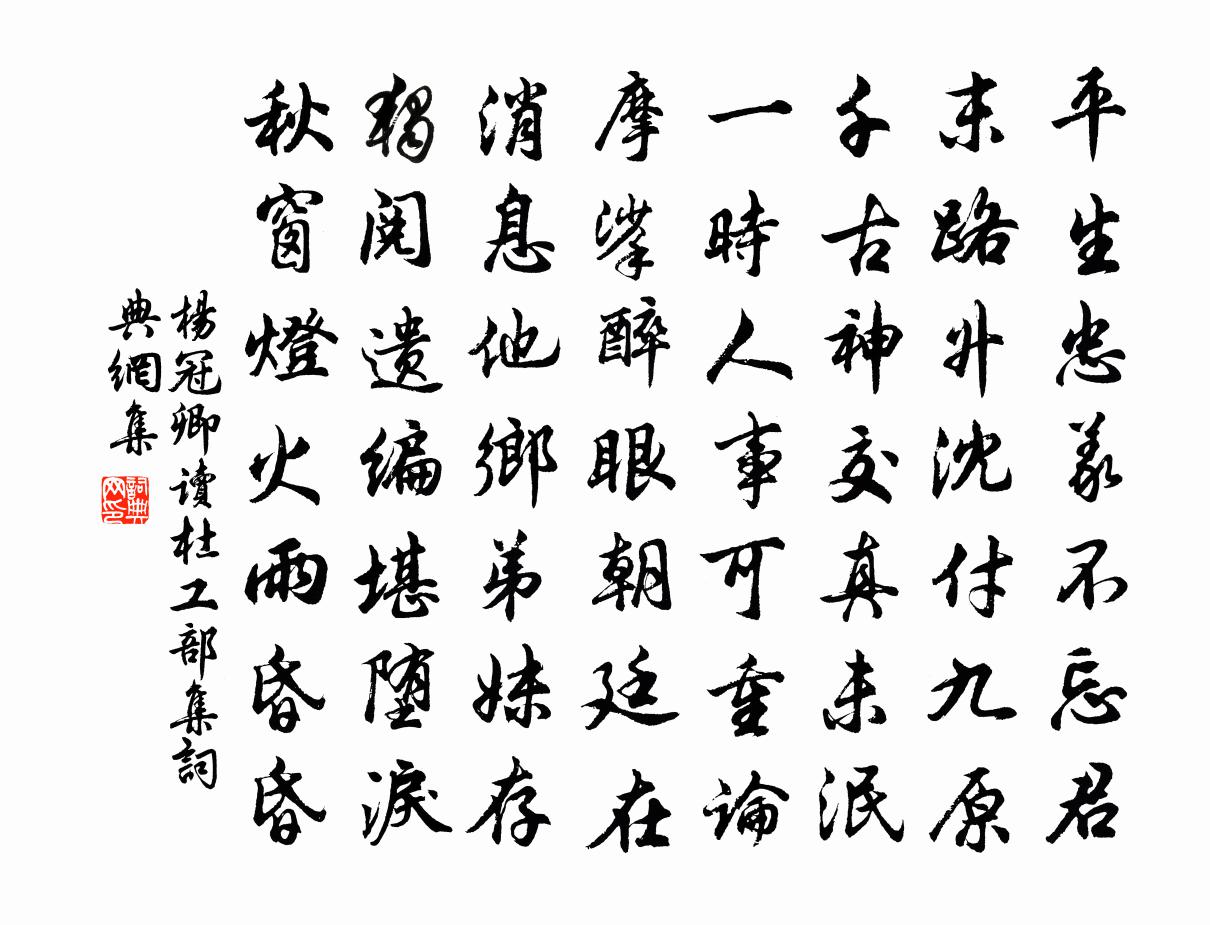 平生忠義不忘君
末路升沈付九原
千古神交真未泯
一時人事可重論
摩挲醉眼朝廷在
消息他鄉弟妹存
獨閱遺編堪墮淚
秋窗燈火雨昏昏
楊冠卿讀杜工部集詞
典網集
詞典网印